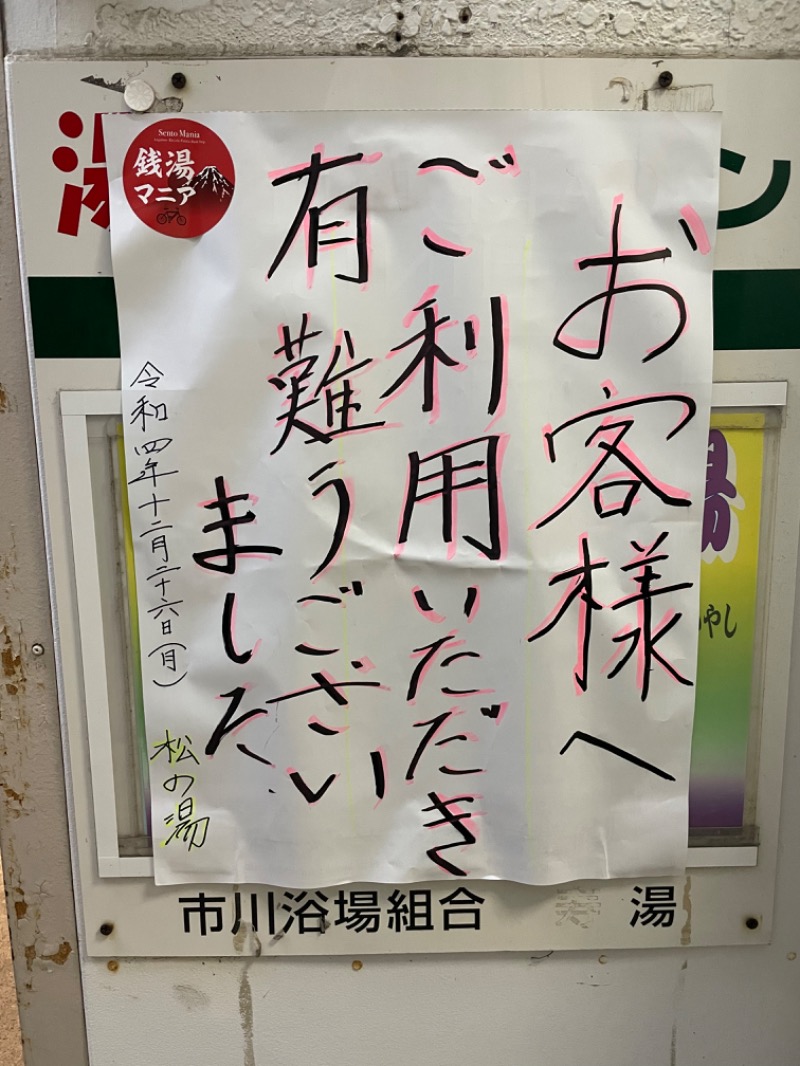 お客様へ
ご利用いただき
有難うござい
ました
令和四年十二月二十六日(月)
松の湯
Sento Mania
銭湯
マニア
湯
ン
湯
やし
市川浴場組合
湯